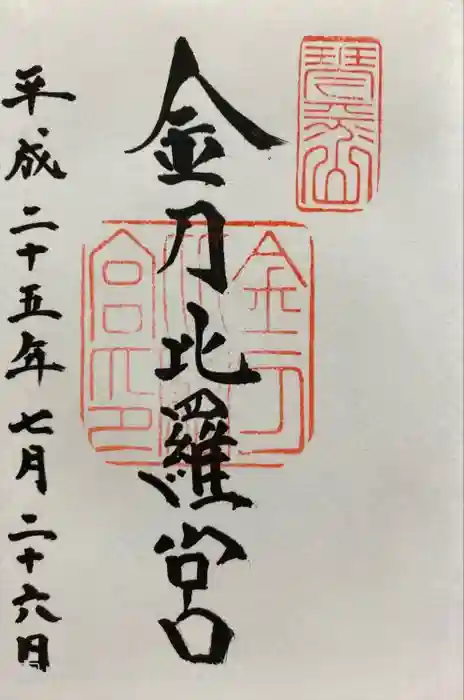 琴平山
金刀比羅宮
金刀比羅宮印
平成二十五年七月二十六日